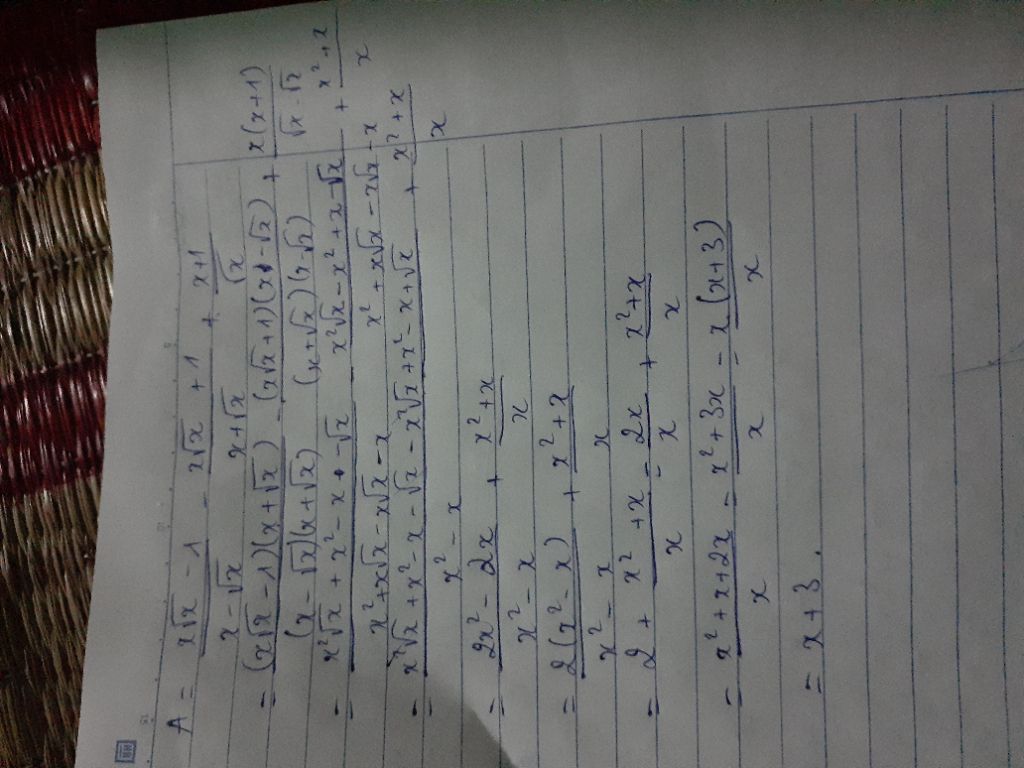 A = (x√x - 1)/(x - √x) - (x√x + 1)/(x + √x) + (x+1)/√x
= ((x√x - 1)(x + √x))/((x - √x)(x + √x)) - ((x√x + 1)(x - √x))/((x + √x)(x - √x)) + (x(x+1))/(√x · √x)
= (x²√x + x² - x - √x)/(x² + x√x - x√x - x) - (x²√x - x² + x - √x)/(x² + x√x - x√x - x) + (x² + x)/x
= (x²√x + x² - x - √x - x²√x + x² - x + √x)/(x² - x) + (x² + x)/x
= (2x² - 2x)/(x² - x) + (x² + x)/x
= (2(x² - x))/(x² - x) + (x² + x)/x
= 2 + (x² + x)/x = 2x/x + (x² + x)/x
= (x² + x + 2x)/x = (x² + 3x)/x = (x(x+3))/x
= x + 3.